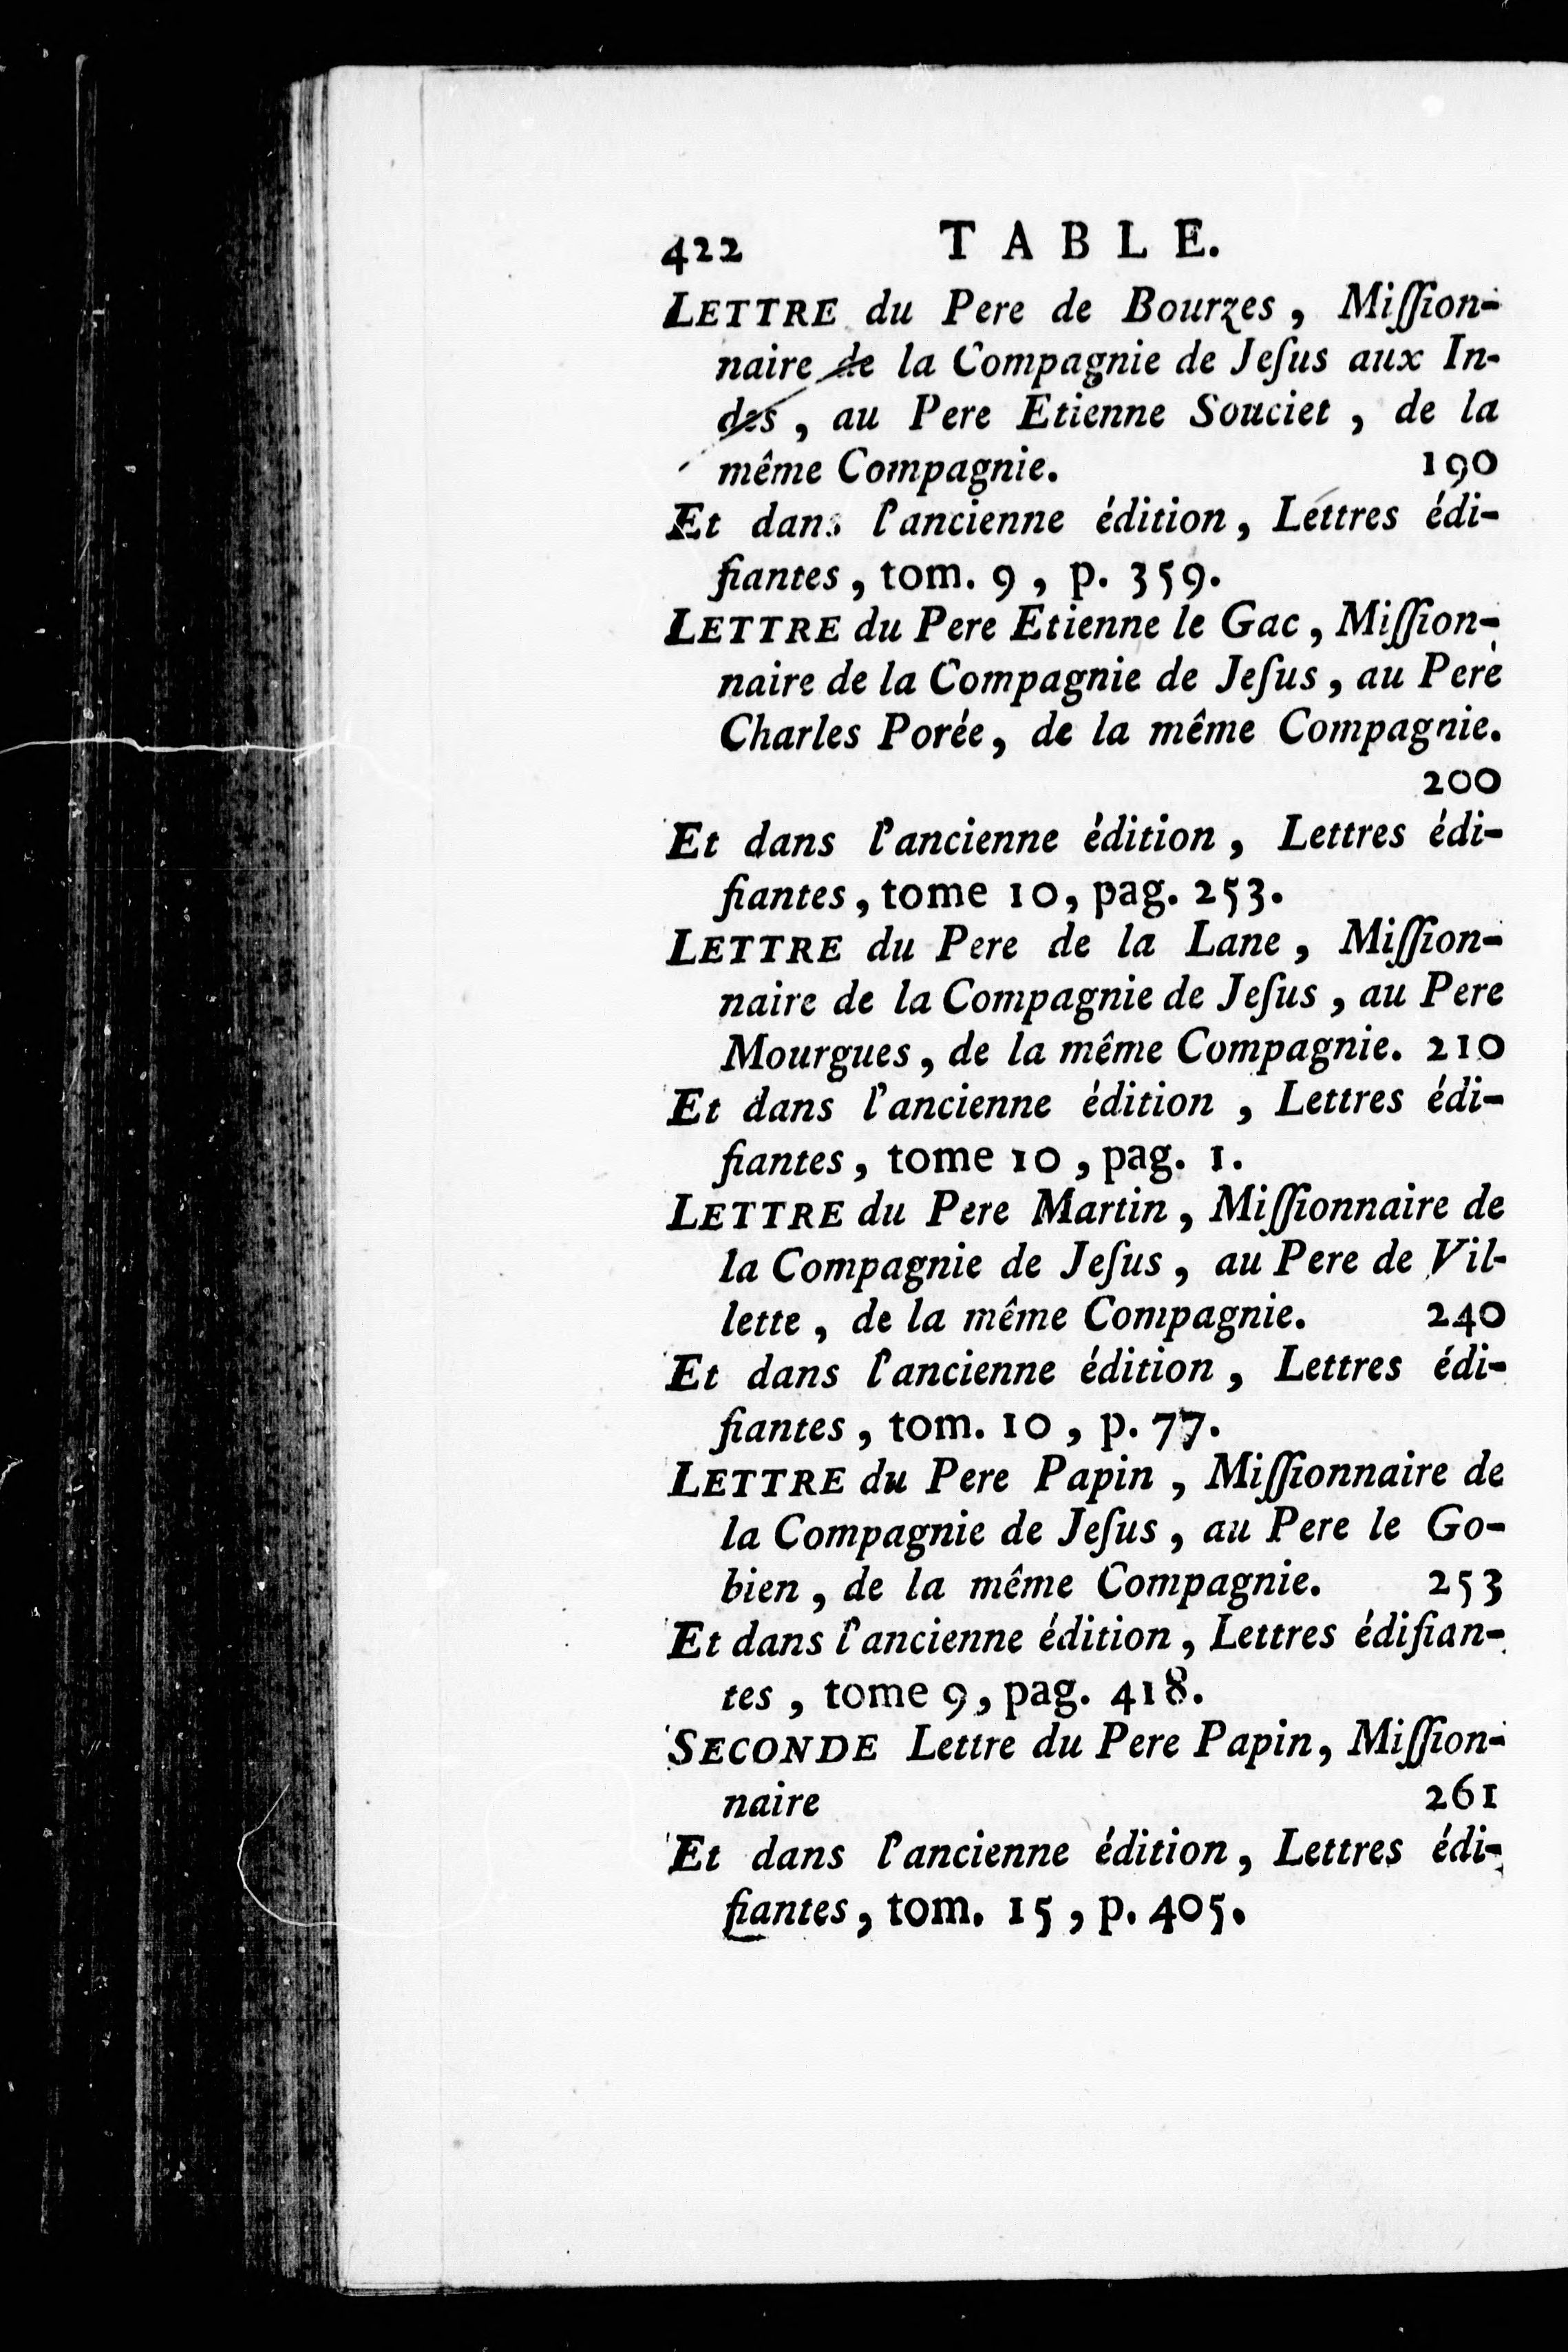 422 TABLE.
LETTRE du Pere de Bourzes, Miſſion-
naire de la Compagnie de Jeſus aux In-
des, au Pere Etienne Souciet, de la
même Compagnie. 190
Et dans l'ancienne édition, Lettres édi-
fiantes, tom. 9, p. 359.
LETTRE du Pere Etienne le Gac, Miſſion-
naire de la Compagnie de Jeſus, au Pere
Charles Porée, de la même Compagnie.
200
Et dans l'ancienne édition, Lettres édi-
fiantes, tome 10, pag. 253.
LETTRE du Pere de la Lane, Miſſion-
naire de la Compagnie de Jeſus, au Pere
Mourgues, de la même Compagnie. 210
Et dans l'ancienne édition, Lettres édi-
fiantes, tome 10, pag. 1.
LETTRE du Pere Martin, Miſſionnaire de
la Compagnie de Jeſus, au Pere de Vil-
lette, de la même Compagnie. 240
Et dans l'ancienne édition, Lettres édi-
fiantes, tom. 10, p. 77.
LETTRE du Pere Papin, Miſſionnaire de
la Compagnie de Jeſus, au Pere le Go-
bien, de la même Compagnie. 253
Et dans l'ancienne édition, Lettres édifian-
tes, tome 9, pag. 418.
SECONDE Lettre du Pere Papin, Miſſion-
naire 261
Et dans l'ancienne édition, Lettres édi-
fiantes, tom. 15, p. 405.